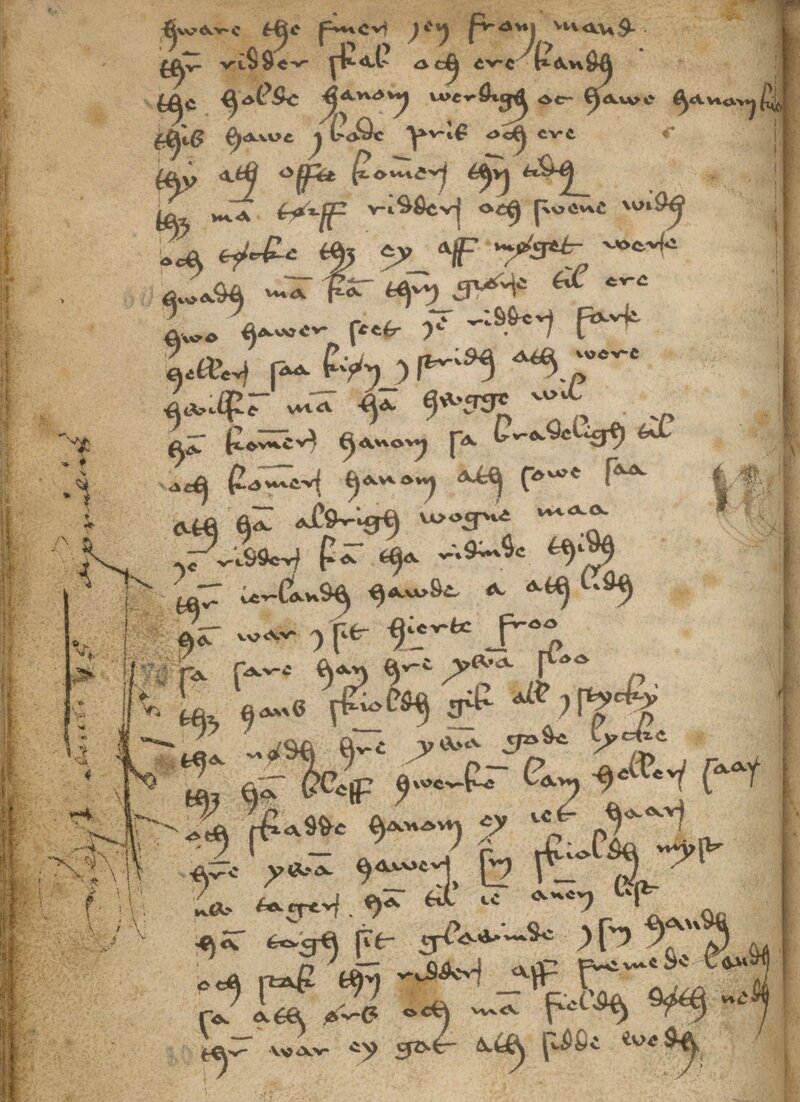 hware the finerj jen from mand
thr̄ ridder skal och ere kandh
the holde hanom werdigh oc hawe hanom
this hawe j bade pris och ere
thy ath offte kom̄erj thn̄ tidh
thz mā tørff ridderj och swēne widh
och tøcke thz ey aff møget werꝛe
hwadh mā kā thn̄ gørꝛe til ere
hwo hawer seet jē ridderj farꝛe
hellerj saa kiøn j stridh ath were
hwilkē mā hā hwgge wil
hā kom̄erj hanom sa bradeligh til
och kom̄erj hanom ath sowe saa
ath hā aldrigh wogne maa
jē ridderj kā tha ridinde thidh
thr̄ ierlandh hawde a ath lidh
hā war j sit hierte froo
sa sare han hr̄e ywā sloo
thz hans skioldh gik all j stycky
tha nødh hr̄e ywā gode lycke
thz hā bleff hwerkē lam hellerj saar
och skadde hanom ey iet haarj
hr̄e ywā hawerj sin̄ skioldh myst
nw tagerj hā til iē anēn list
hā togh sit̄ glawinde j sin handh
och stak thn̄ ridderj aff fremede landh
sa ath ørs och mā fieldh døth nedh
thr̄ war ey got ath sidde wedh
60
70
80